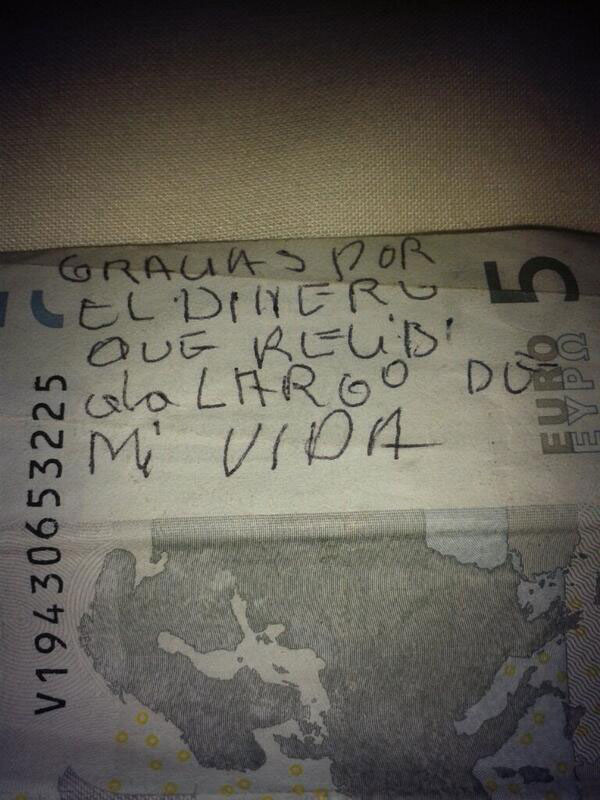 GRACIAS POR
EL DINERO
QUE RECIBI
a lo LARGO DE
Mi VIDA
5
EURO
ΕΥΡΩ
V19430653225